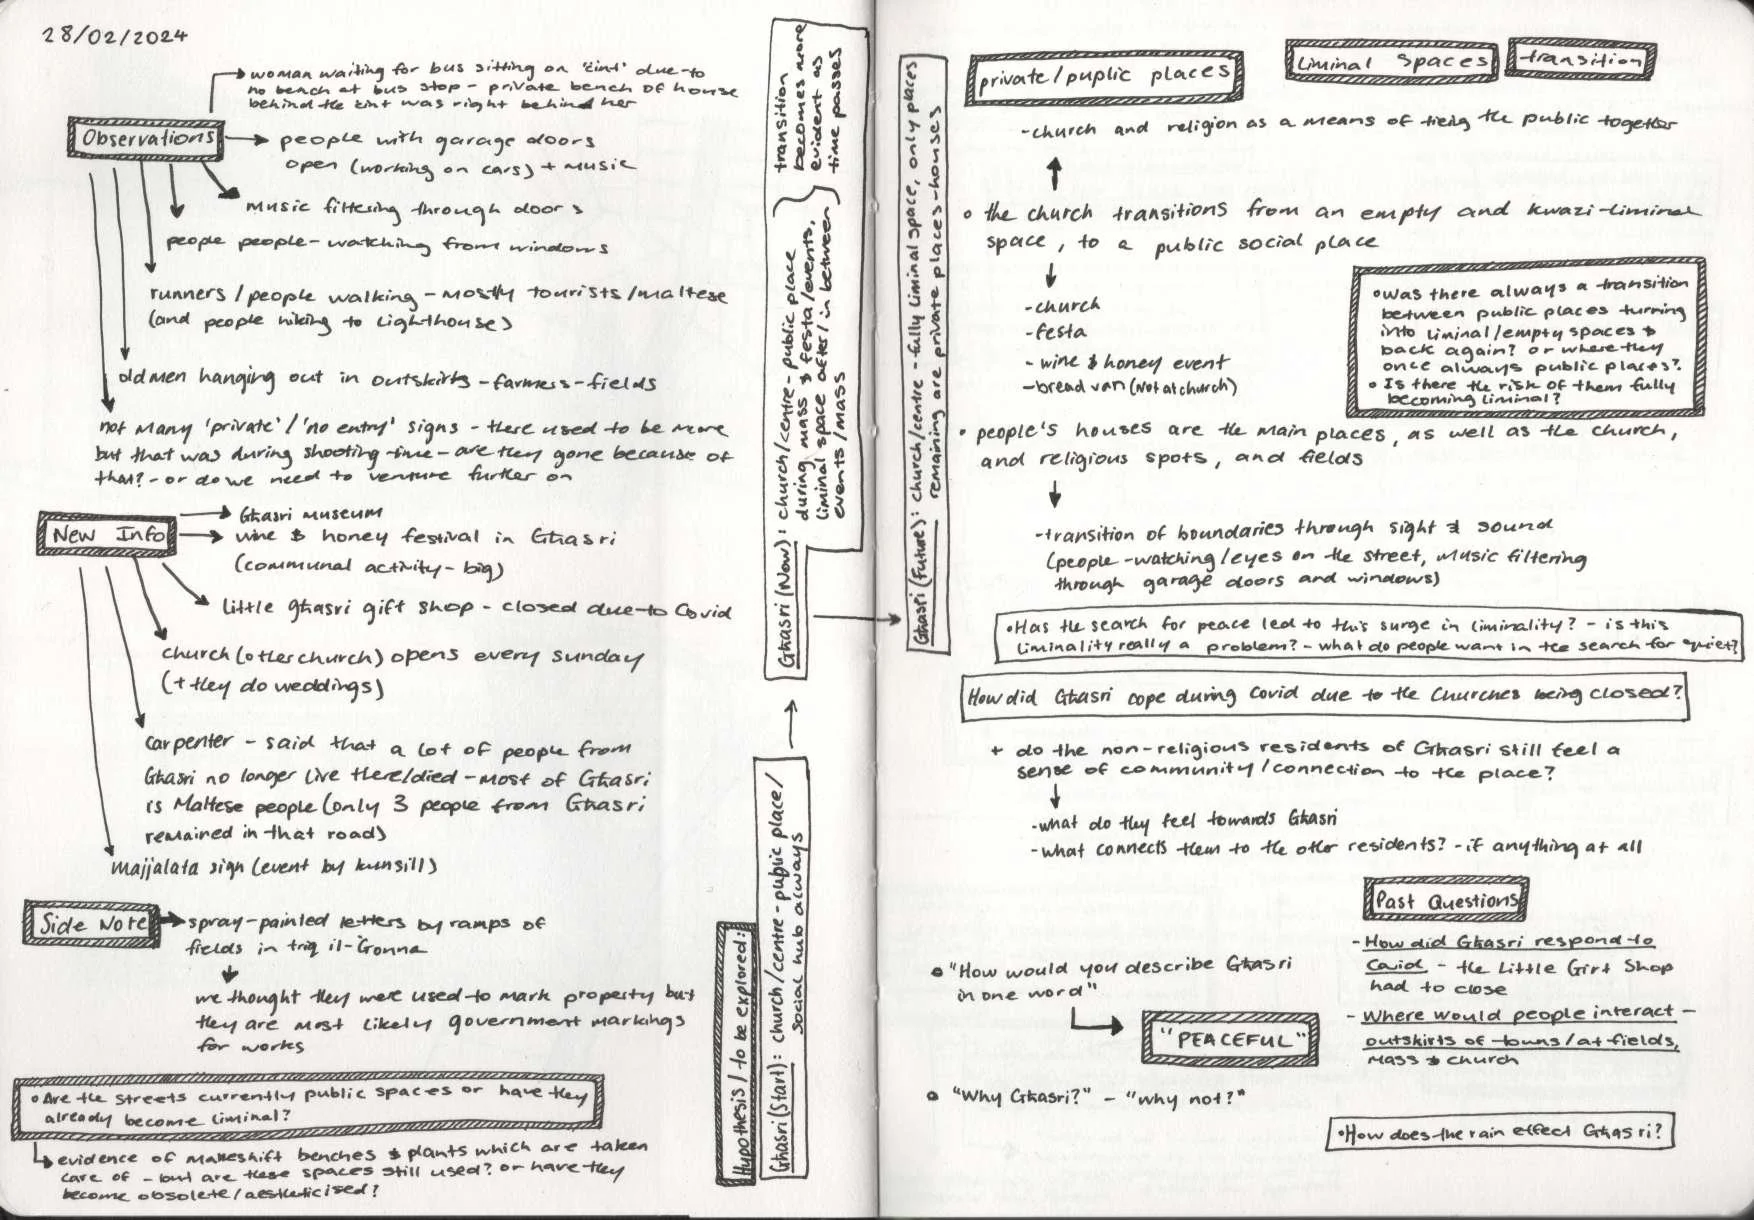 28/02/2024
woman waiting for bus sitting on 'ċint' due-to
no bench at bus stop - private bench of house
behind the ċint was right behind her
Observations
people with garage doors
open (working on cars) + music
music filtering through doors
people people-watching from windows
runners / people walking - mostly tourists/maltese
(and people hiking to lighthouse)
old men hanging out in outskirts - farmers - fields
not many 'private' / 'no entry' signs - there used to be more
but that was during shooting time - are they gone because of
that? - or do we need to venture further on
New Info
Għasri museum
wine & honey festival in Għasri
(communal activity - big)
Little għasri gift shop - closed due-to Covid
church (other church) opens every sunday
(+ they do weddings)
carpenter - said that a lot of people from
Għasri no longer live there/died - most of Għasri
is Maltese people (only 3 people from Għasri
remained in that road)
majjalata sign (event by kunsill)
Side Note
spray-painted letters by ramps of
fields in triq il-Ġonna
we thought they were used to mark property but
they are most likely government markings
for works
• Are the streets currently public spaces or have they
already become liminal?
evidence of makeshift benches & plants which are taken
care of - but are these spaces still used? or have they
become obsolete/aestheticised?
Hypothesis / to be explored:
Għasri (Start): church/centre - public place/
social hub always
Għasri (Now): church/centre - public place
during mass & festa/events,
liminal space after/in between
events/mass
transition
becomes more
evident as
time passes
Għasri (Future): church/centre - fully liminal space, only places
remaining are private places - houses
private/puplic places
Liminal Spaces
transition
- church and religion as a means of tieing the public together
• the church transitions from an empty and kwazi-liminal
space, to a public social place
- church
- festa
- wine & honey event
- bread van (Not at church)
• Was there always a transition
between public places turning
into liminal/empty spaces &
back again? or where they
once always public places?
• Is there the risk of them fully
becoming liminal?
• people's houses are the main places, as well as the church,
and religious spots, and fields
- transition of boundaries through sight & sound
(people-watching/eyes on the street, music filtering
through garage doors and windows)
• Has the search for peace led to this surge in liminality? - is this
liminality really a problem? - what do people want in the search for quiet?
How did Għasri cope during Covid due to the Churches being closed?
+ do the non-religious residents of Għasri still feel a
sense of community/connection to the place?
- what do they feel towards Għasri
- what connects them to the other residents? - if anything at all
Past Questions
- How did Għasri respond to
Covid - the Little Girt Shop
had to close
- Where would people interact -
outskirts of towns/at fields,
mass & church
• "How would you describe Għasri
in one word"
"PEACEFUL"
• "Why Għasri?" - "why not?"
• How does the rain effect Għasri?